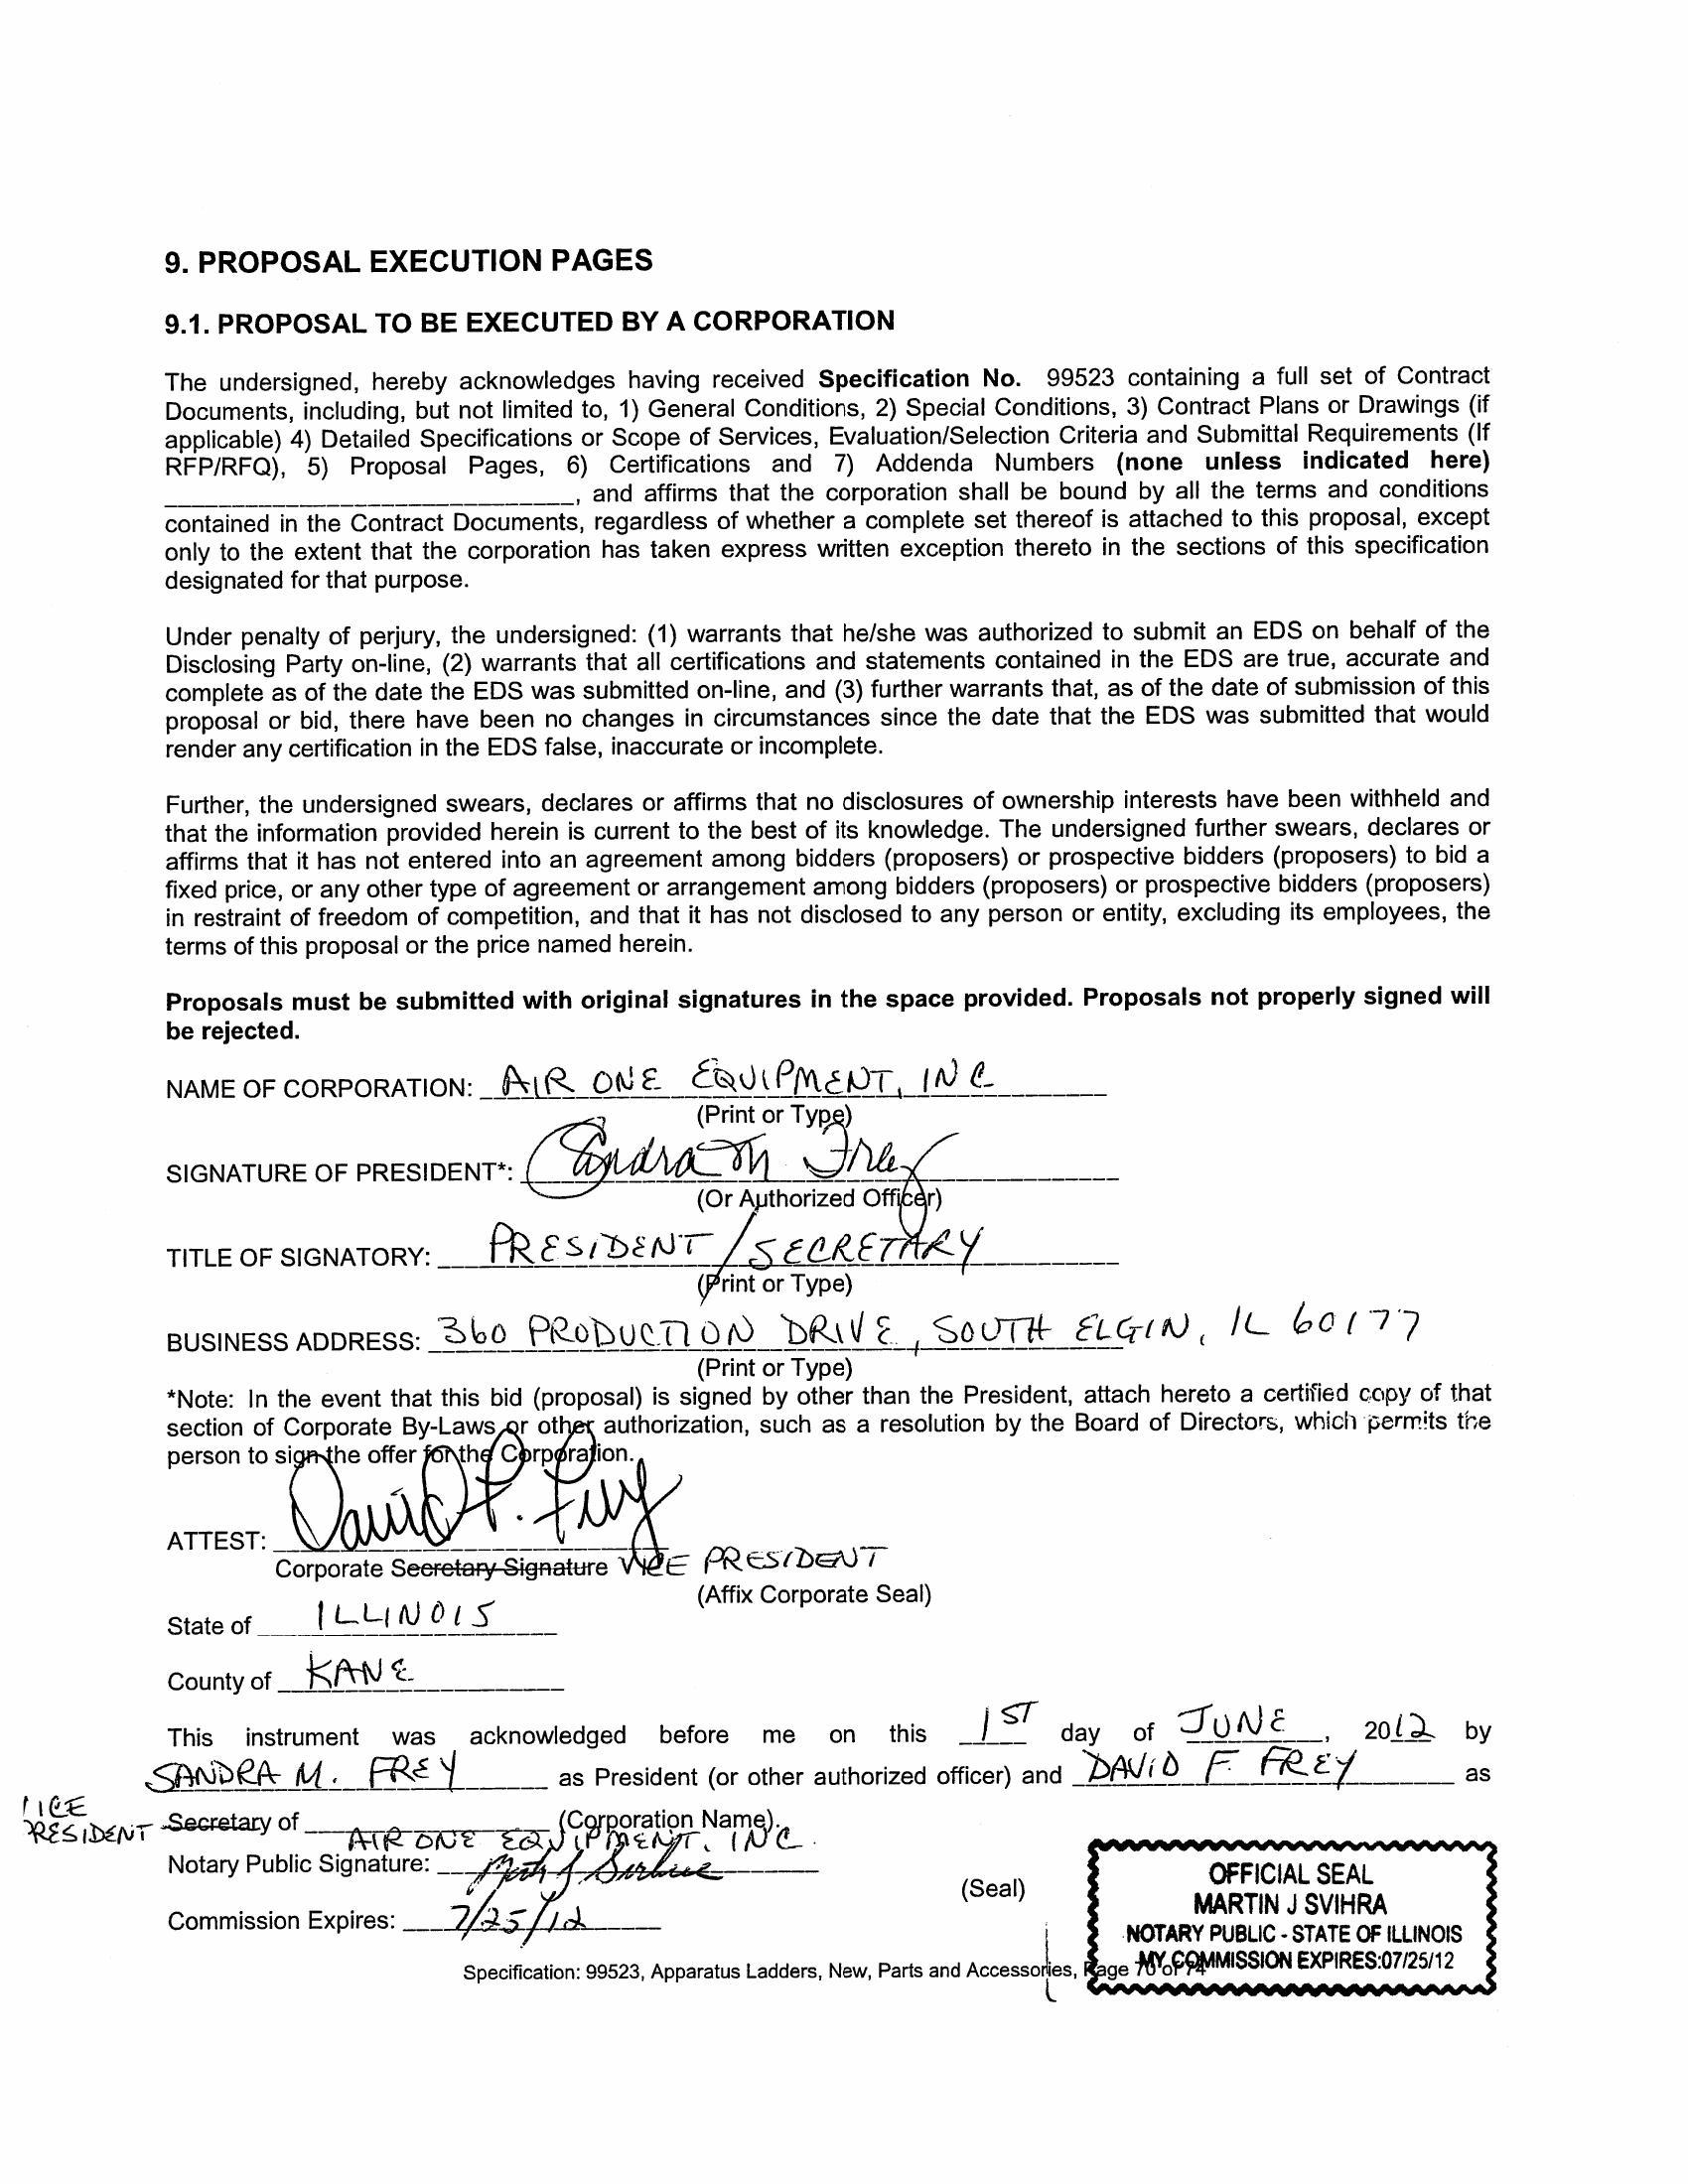 9. PROPOSAL EXECUTION PAGES
9.1. PROPOSAL TO BE EXECUTED BY A CORPORATION
The undersigned, hereby acknowledges having received Specification No. 99523 containing a full set of Contract
Documents, including, but not limited to, 1) General Conditions, 2) Special Conditions, 3) Contract Plans or Drawings (if
applicable) 4) Detailed Specifications or Scope of Services, Evaluation/Selection Criteria and Submittal Requirements (If
RFP/RFQ), 5) Proposal Pages, 6) Certifications and 7) Addenda Numbers (none unless indicated here)
______________________________, and affirms that the corporation shall be bound by all the terms and conditions
contained in the Contract Documents, regardless of whether a complete set thereof is attached to this proposal, except
only to the extent that the corporation has taken express written exception thereto in the sections of this specification
designated for that purpose.
Under penalty of perjury, the undersigned: (1) warrants that he/she was authorized to submit an EDS on behalf of the
Disclosing Party on-line, (2) warrants that all certifications and statements contained in the EDS are true, accurate and
complete as of the date the EDS was submitted on-line, and (3) further warrants that, as of the date of submission of this
proposal or bid, there have been no changes in circumstances since the date that the EDS was submitted that would
render any certification in the EDS false, inaccurate or incomplete.
Further, the undersigned swears, declares or affirms that no disclosures of ownership interests have been withheld and
that the information provided herein is current to the best of its knowledge. The undersigned further swears, declares or
affirms that it has not entered into an agreement among bidders (proposers) or prospective bidders (proposers) to bid a
fixed price, or any other type of agreement or arrangement among bidders (proposers) or prospective bidders (proposers)
in restraint of freedom of competition, and that it has not disclosed to any person or entity, excluding its employees, the
terms of this proposal or the price named herein.
Proposals must be submitted with original signatures in the space provided. Proposals not properly signed will
be rejected.
NAME OF CORPORATION: AIR ONE EQUIPMENT, INC
(Print or Type)
SIGNATURE OF PRESIDENT*: Sandra M Frey
(Or Authorized Officer)
TITLE OF SIGNATORY: PRESIDENT / SECRETARY
(Print or Type)
BUSINESS ADDRESS: 360 PRODUCTION DRIVE, SOUTH ELGIN, IL 60177
(Print or Type)
*Note: In the event that this bid (proposal) is signed by other than the President, attach hereto a certified copy of that
section of Corporate By-Laws or other authorization, such as a resolution by the Board of Directors, which permits the
person to sign the offer for the Corporation.
ATTEST: David F. Frey
Corporate Secretary Signature VICE PRESIDENT
(Affix Corporate Seal)
State of ILLINOIS
County of KANE
This instrument was acknowledged before me on this 1ST day of JUNE, 2012 by
SANDRA M. FREY as President (or other authorized officer) and DAVID F. FREY as
VICE
PRESIDENT Secretary of (Corporation Name).
AIR ONE EQUIPMENT, INC.
Notary Public Signature: Martin J Svihra
(Seal)
Commission Expires: 7/25/12
OFFICIAL SEAL
MARTIN J SVIHRA
NOTARY PUBLIC - STATE OF ILLINOIS
MY COMMISSION EXPIRES:07/25/12
Specification: 99523, Apparatus Ladders, New, Parts and Accessories, Page 70 of 74